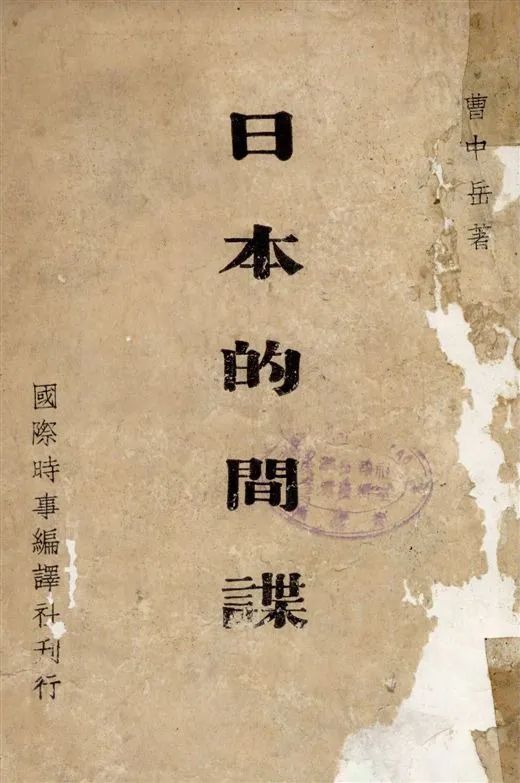 曹中岳著
日本的間諜
國際時事編譯社刊行